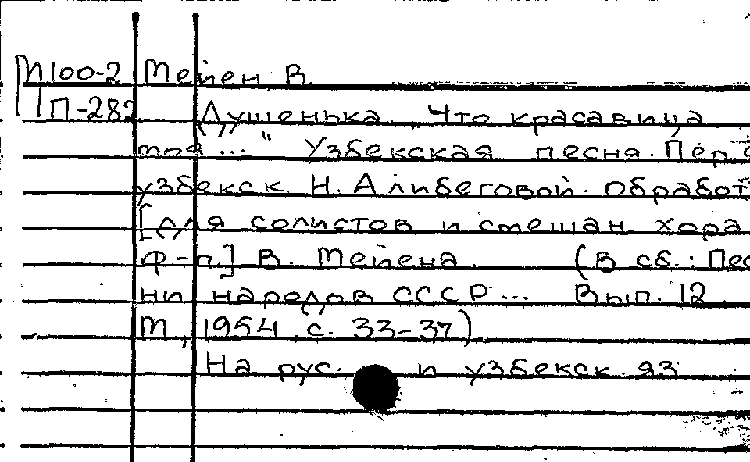 М100-2 Мейен В.
П-282 „Душенька. Что красавица
моя..." Узбекская песня. Пер. с
узбекск. Н. Алибеговой. Обработ
[для солистов и смешан. хора
ф-п.] В. Мейена. (В сб.: Пес-
ни народов СССР... Вып. 12
М., 1954, с. 33-37)
На рус. и узбекск. яз.